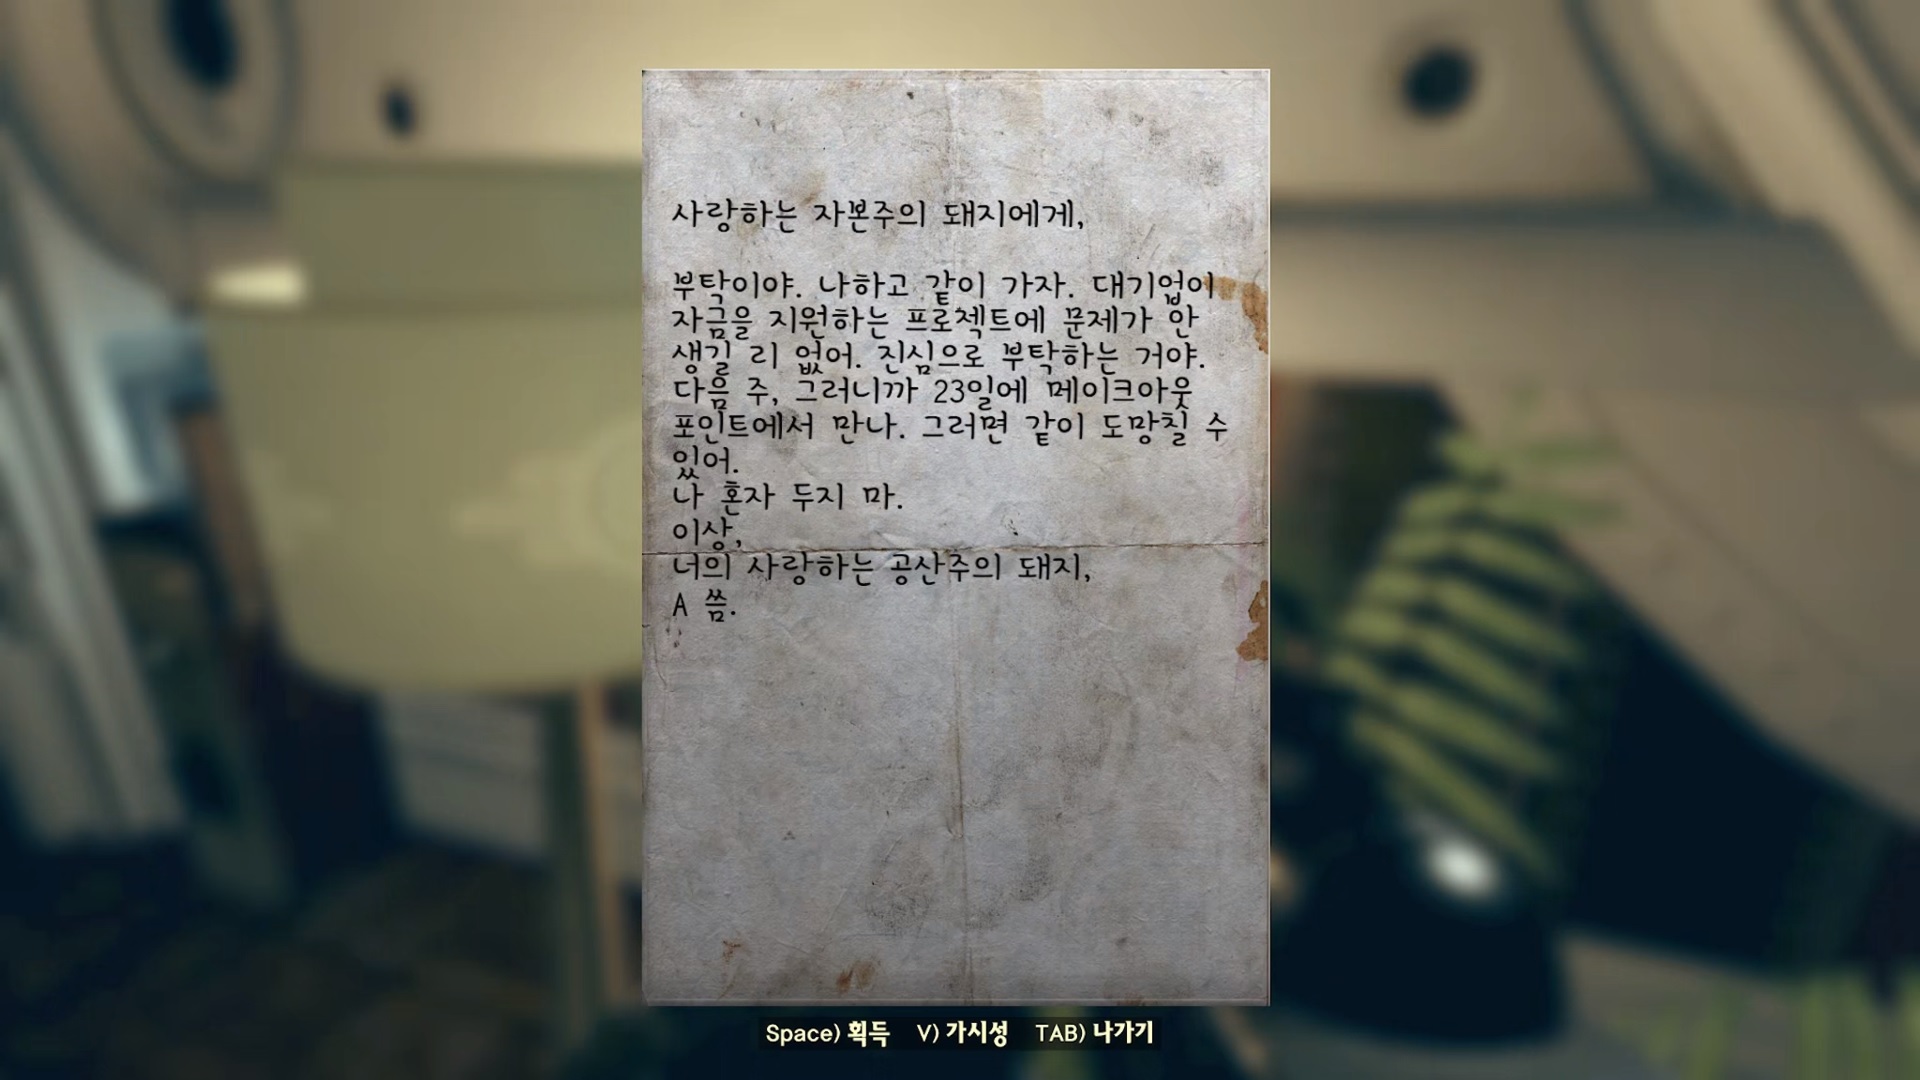 사랑하는 자본주의 돼지에게,
부탁이야. 나하고 같이 가자. 대기업이
자금을 지원하는 프로젝트에 문제가 안
생길 리 없어. 진심으로 부탁하는 거야.
다음 주, 그러니까 23일에 메이크아웃
포인트에서 만나. 그러면 같이 도망칠 수
있어.
나 혼자 두지 마.
이상,
너의 사랑하는 공산주의 돼지,
A 씀.
Space) 획득 V) 가시성 TAB) 나가기